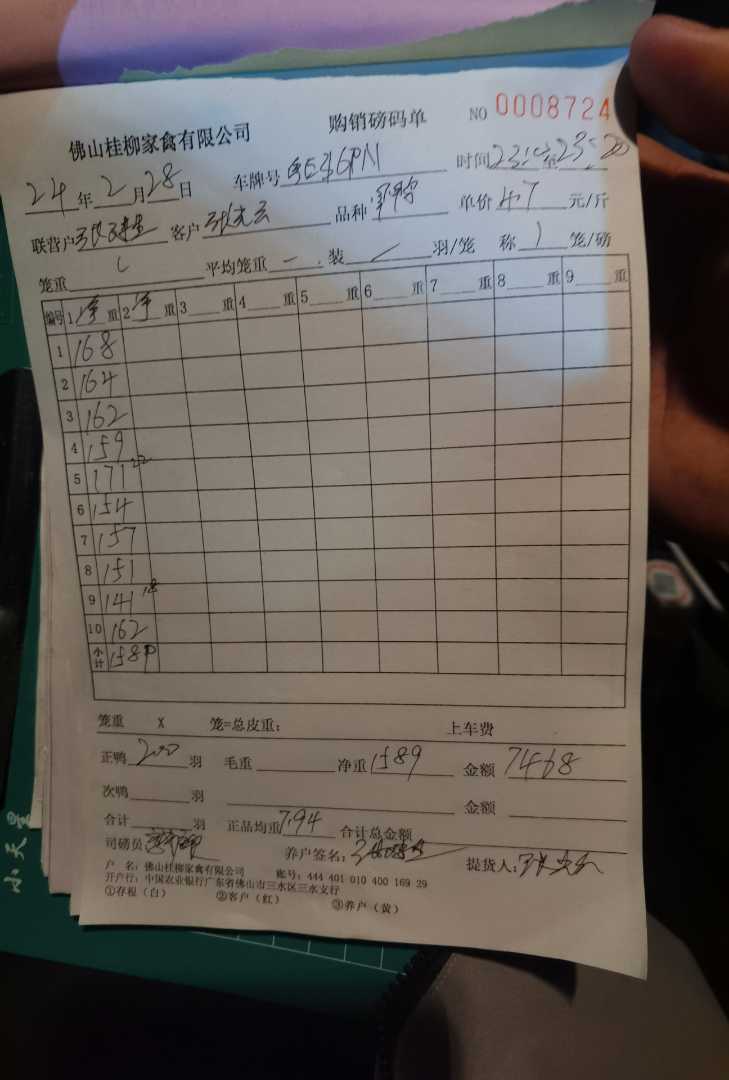 佛山桂柳家禽有限公司 购销磅码单 NO 0008724
24年2月28日 车牌号 时间 至
联营户 客户 品种 单价4.7元/斤
笼重 平均笼重 一 装 羽/笼 称1笼/磅
编号 1 净重 2 净重 3 重 4 重 5 重 6 重 7 重 8 重 9 重
1 168
2 164
3 162
4 159
5 171 22
6 154
7 157
8 151
9 141 18
10 162
小计 1589
笼重 X 笼=总皮重: 上车费
正鸭200羽 毛重 净重1589 金额7468
次鸭 羽 金额
合计 羽 正品均重7.94 合计总金额
司磅员: 养户签名: 提货人:
户 名:佛山桂柳家禽有限公司 账号:444 401 010 400 169 29
开户行:中国农业银行广东省佛山市三水区三水支行
①存根(白) ②客户(红) ③养户(黄)
小天